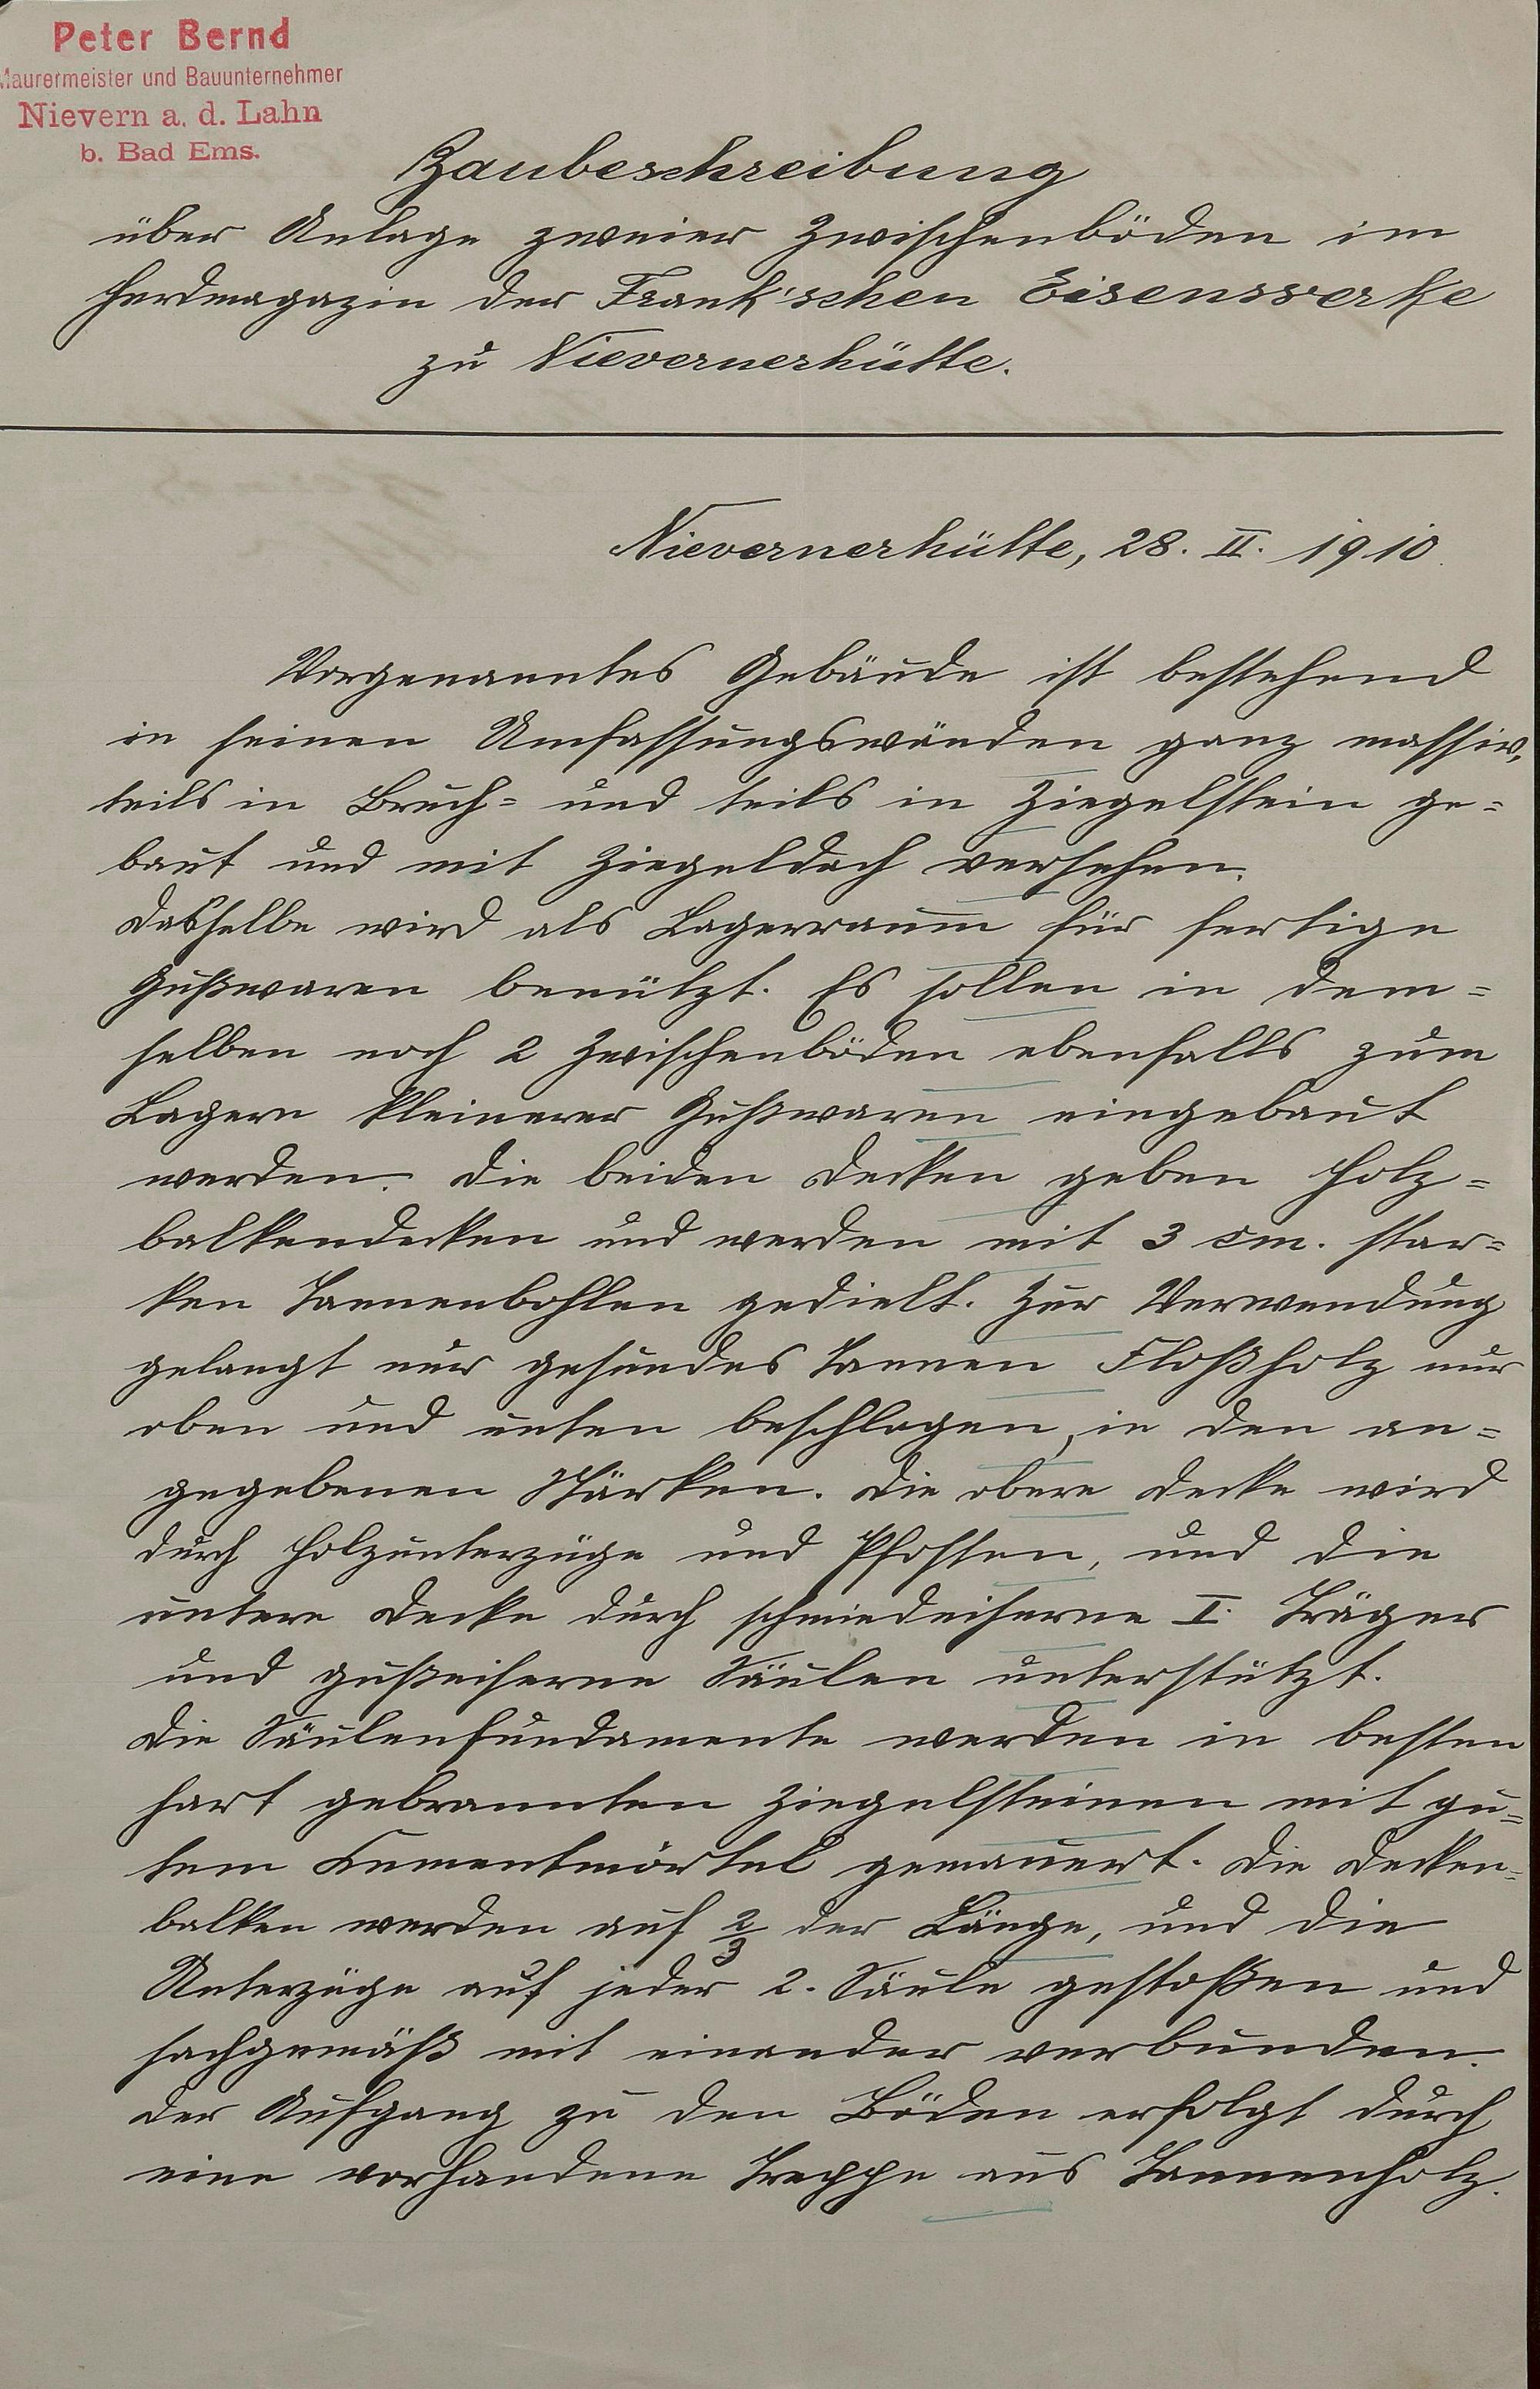 Peter Bernd
Maurermeister und Bauunternehmer
Nievern a. d. Lahn
b. Bad Ems.
Baubeschreibung
über Anlage zweier Zwischenböden im
Herdmagazin der Frank'schen Eisenwerke
zu Nievernerhütte.
Nievernerhütte, 28. II. 1910.
Vorgenanntes Gebäude ist bestehend
in seinen Umfassungswänden ganz massiv,
teils in Bruch= und teils in Ziegelstein ge=
baut und mit Ziegeldach versehen.
Dasselbe wird als Lagerraum für fertige
Gußwaren benützt. Es sollen in dem=
selben noch 2 Zwischenböden ebenfalls zum
Lagern kleinerer Gußwaren eingebaut
werden. Die beiden Decken geben Holz=
balkendecken und werden mit 3 cm. star=
ken Tannenbohlen gedielt. Zur Verwendung
gelangt nur gesundes Tannen Floßholz nur
oben und unten beschlagen, in den an=
gegebenen Stärken. Die obere Decke wird
durch Holzunterzüge und Pfosten, und die
untere Decke durch schmiedeiserne I. Träger
und gußeiserne Säulen unterstützt.
Die Säulenfundamente werden in besten
hart gebrannten Ziegelsteinen mit gu=
tem Zementmörtel gemauert. Die Decken=
balken werden auf 2/3 der Länge, und die
Unterzüge auf jeder 2. Säule gestoßen und
sachgemäß mit einander verbunden.
Der Aufgang zu den Böden erfolgt durch
eine vorhandene Treppe aus Tannenholz.